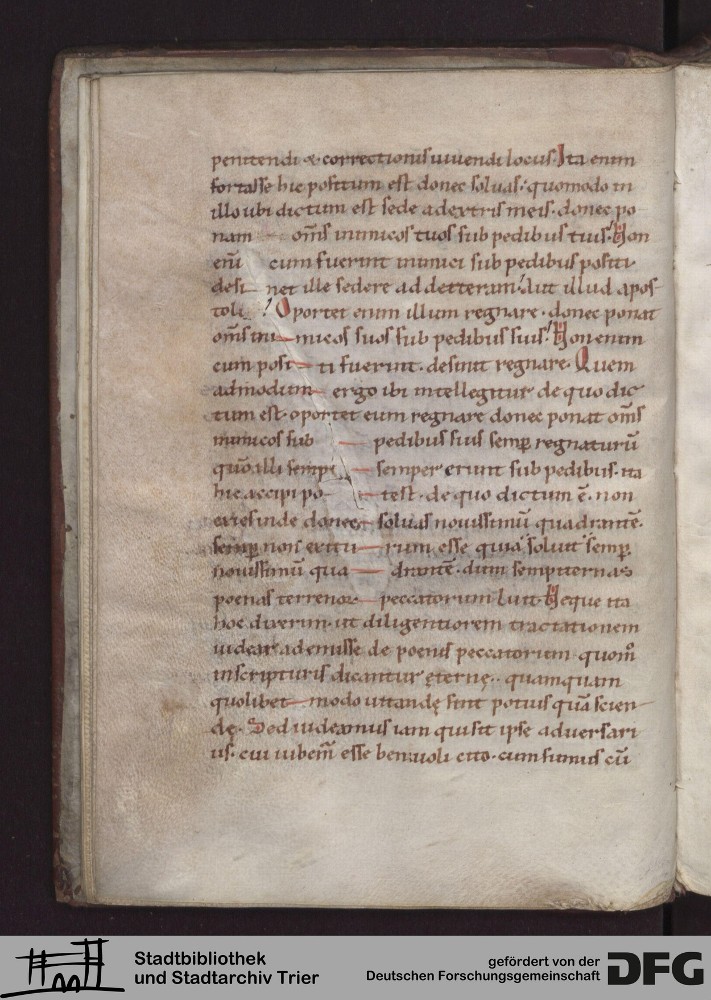 penitendi & correctionis uiuendi locus. Ita enim
fortasse hic positum est donec soluas. quomodo in
illo ubi dictum est sede a dextris meis. donec po
nam om̅s inimicos tuos sub pedibus tuis. Non
eni̅ cum fuerint inimici sub pedibus positi
desi net ille sedere ad dexteram. Aut illud apos
toli. Oportet enim illum regnare. donec ponat
om̅s ini micos suos sub pedibus suis. Non enim
cum posi ti fuerint. desinit regnare. Quem
admodum ergo ibi intellegitur de quo dic
tum est. oportet eum regnare donec ponat om̅s
inimicos sub pedibus suis semp̲ regnaturu̅
quo̅ illi semper erunt sub pedibus. ita
hic accipi po test. de quo dictum e̅. non
exies inde donec soluas nouissimu̅ quadrante̅.
semp̲ non exitu rum esse quia soluit semp̲
nouissimu̅ qua drante̅. dum sempiternas
poenas terrenor peccatorum luit. Neque ita
hoc dixerim. ut diligentiorem tractationem
uidear ademisse de poenis peccatorum. quom̅
in scripturis dicantur ęternę. quamquam
quolibet modo uitandę sint potius qua̅ scien
dę. Sed uideamus iam qui sit ipse aduersari
us. cui iubem̅ esse beniuoli cito. cum sumus cu̅
Stadtbibliothek
und Stadtarchiv Trier
gefördert von der
Deutschen Forschungsgemeinschaft
DFG